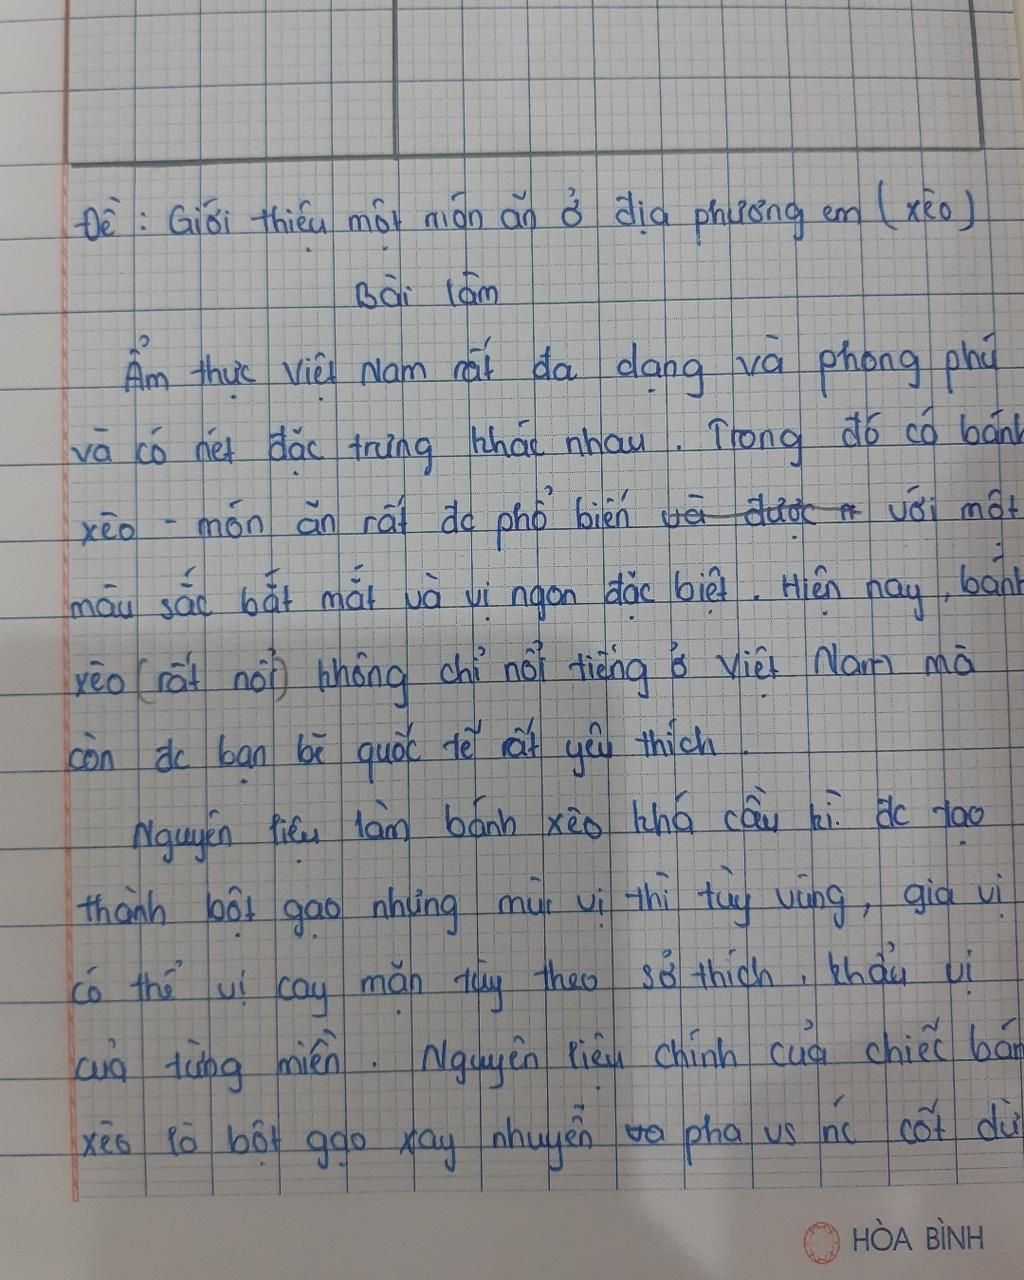 Đề : Giới thiệu một món ăn ở địa phương em (xèo)
Bài làm
Ẩm thực Việt Nam rất đa dạng và phong phú
và có nét đặc trưng khác nhau. Trong đó có bánh
xèo - món ăn rất đc phổ biến và được với một
màu sắc bắt mắt và vị ngon đặc biệt. Hiện nay, bánh
xèo (rất nổi) không chỉ nổi tiếng ở Việt Nam mà
còn đc bạn bè quốc tế rất yêu thích.
Nguyên liệu làm bánh xèo khá cầu kì: đc tạo
thành bột gạo nhưng mùi vị thì tùy vùng, gia vị
có thể vị cay mặn tùy theo sở thích, khẩu vị
của từng miền. Nguyên liệu chính của chiếc bán
xèo là bột gạo xay nhuyễn và pha vs nc cốt dừ
HÒA BÌNH